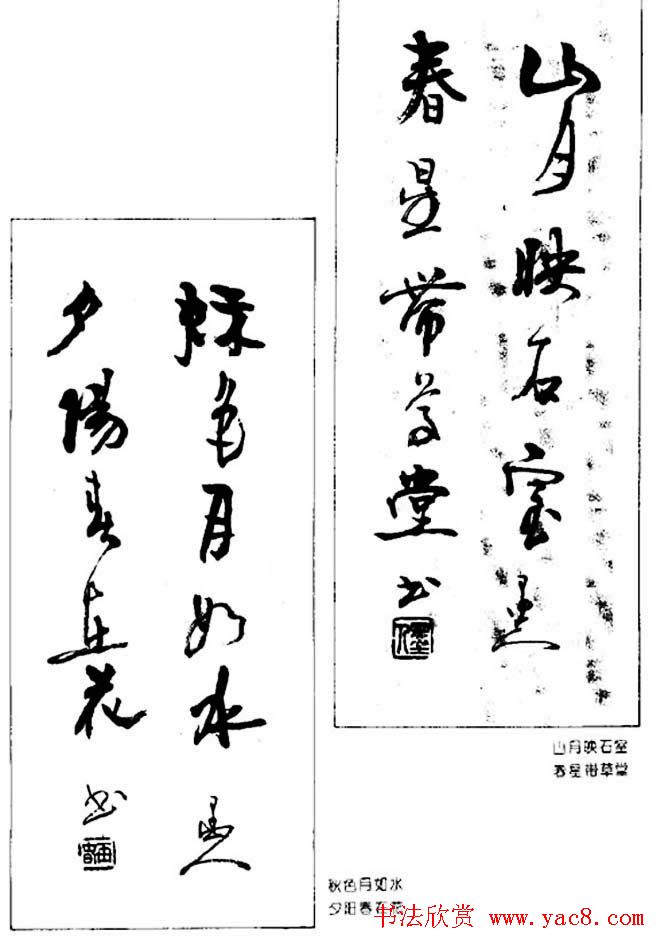 山月映石室
春星带草堂
墨人
书
秋色月如水
夕陽春在花
墨人
书
山月映石室
春星带草堂
秋色月如水
夕阳春在花
书法欣赏 www.yac8.com